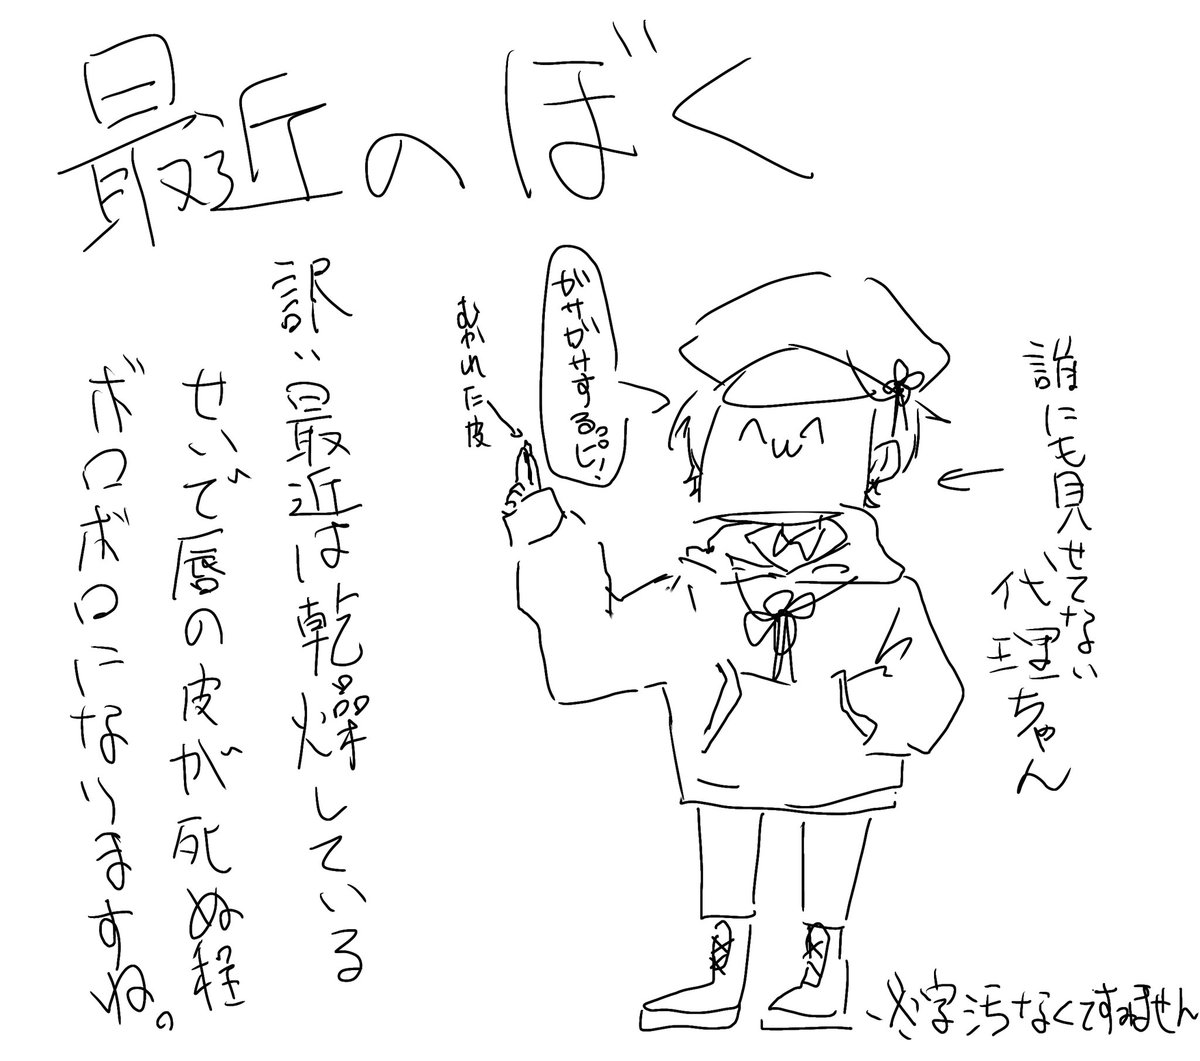 最近のぼく
誰にも見せてない
代理ちゃん
がさがさするっピ!
むかれた皮
訳:最近は乾燥している
せいで唇の皮が死ぬ程
ボロボロになりますね。
※字汚なくてすません